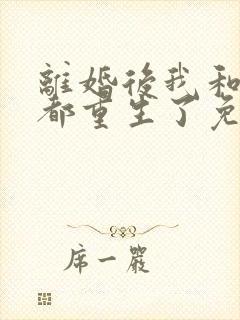 離婚後我和
都重生了免
席一嚴